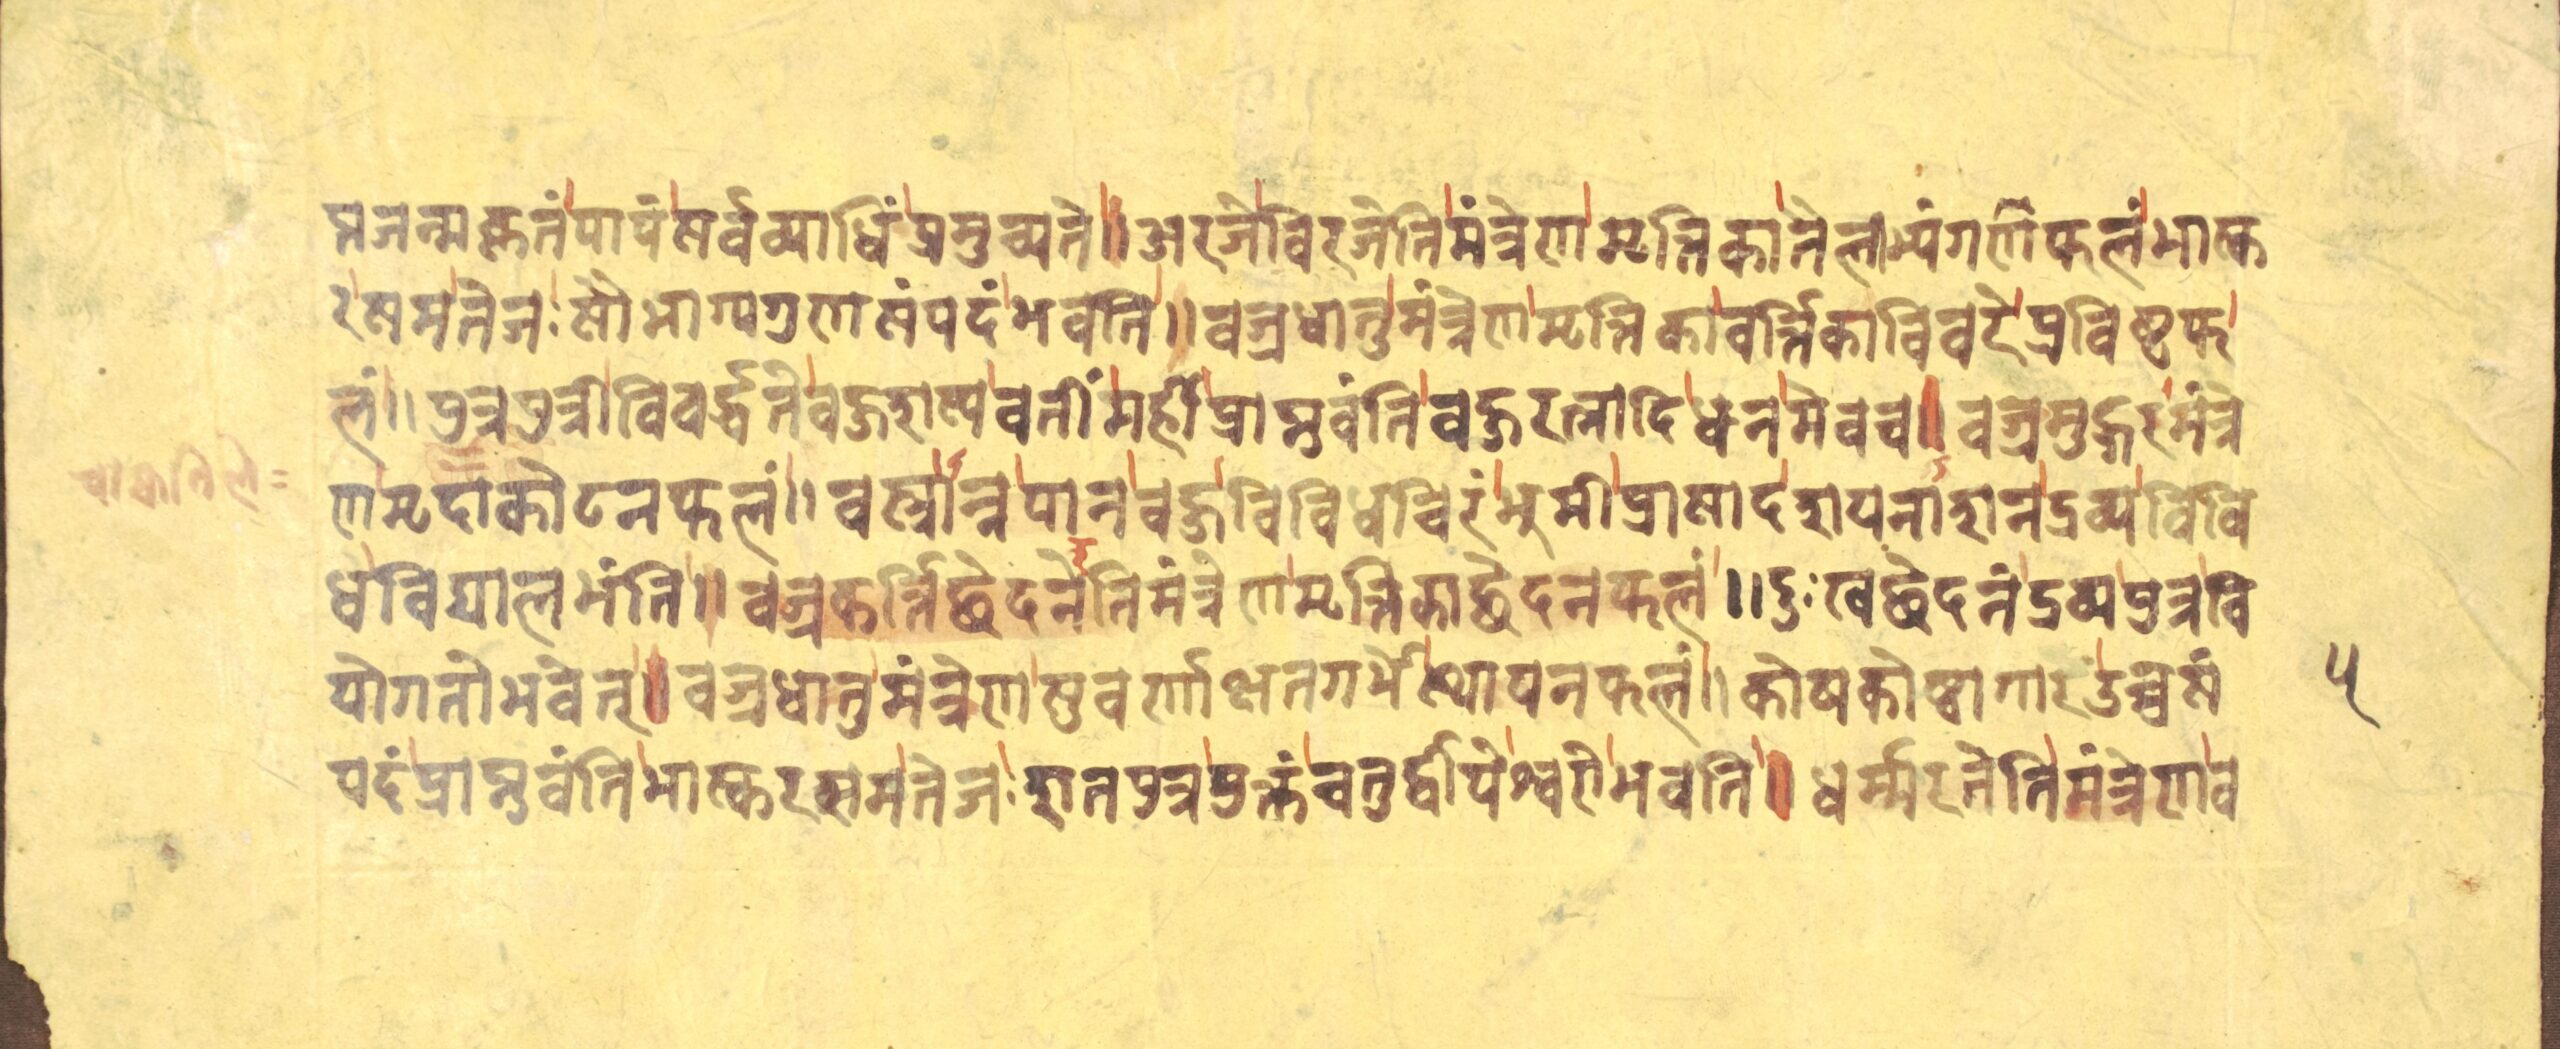 प्तजन्मकृतंपापंसर्वव्याधिंप्रमुच्यते॥अरजेविरजेतिमंत्रेणमृत्तिकातैलाभ्यंगणेफलंभास्क
रसमतेजःसौभाग्यगुणसंपदंभवंति॥वज्रधातुमंत्रेणमृत्तिकावर्त्तिकाविवरेप्रविष्टफ
लं॥पुत्रपुत्रीविवर्द्धतेवहुशष्यवतींमहीप्राप्नुवंतिवहुरत्नादिधनमेवच॥वज्रमुद्गरमंत्रे
णमृदाकोटनफलं॥वस्त्रान्नपानवहुविविधंचिरंभुमीप्रासादशयनाशनद्रव्यविवि
धविद्यालभंति॥वज्रकर्त्तिछेदनेतिमंत्रेणमृत्तिकाछेदनफलं॥दुःखछेदनंद्रव्यपुत्रवि
योगतोभवेत्॥वज्रधातुमंत्रेणसुवर्णाक्षतगर्भेस्थापनफलं॥कोषकोष्ठागारंउच्चसं
पदंप्राप्नुवंतिभास्करसमतेजःशतपुत्रप्रुक्तंचतुर्द्वीपेश्वरोभवति॥धर्म्मरतेतिमंत्रेणव
५